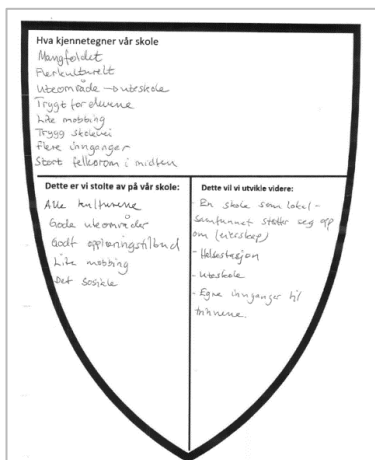 Hva kjennetegner vår skole
Mangfoldet
Flerkulturelt
Uteområde → uteskole
Trygt for elevene
Lite mobbing
Trygg skolevei
Flere innganger
Stort fellesrom i midten
Dette er vi stolte av på vår skole:
Alle kulturene
Gode uteområder
Godt opplæringstilbud
Lite mobbing
Det sosiale
Dette vil vi utvikle videre:
- En skole som lokal-
samfunnet støtter seg opp
om (eierskap)
- Helsestasjon
- Uteskole
- Egne innganger til
trinnene.